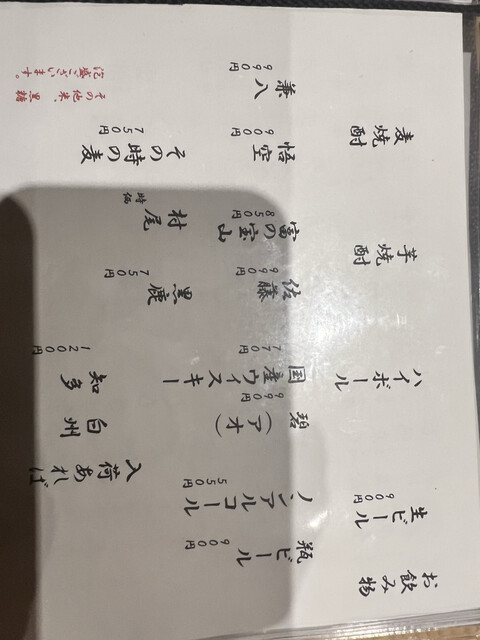 お飲み物
生ビール
900円
瓶ビール
900円
ノンアルコール
550円
ハイボール
国産ウイスキー
770円
碧(アオ)
990円
知多
1200円
白州
入荷あれば
芋焼酎
佐藤
990円
富の宝山
850円
黒鹿
750円
村尾
時価
麦焼酎
悟空
900円
兼八
990円
その時の麦
750円
その他米、黒糖
泡盛ございます。